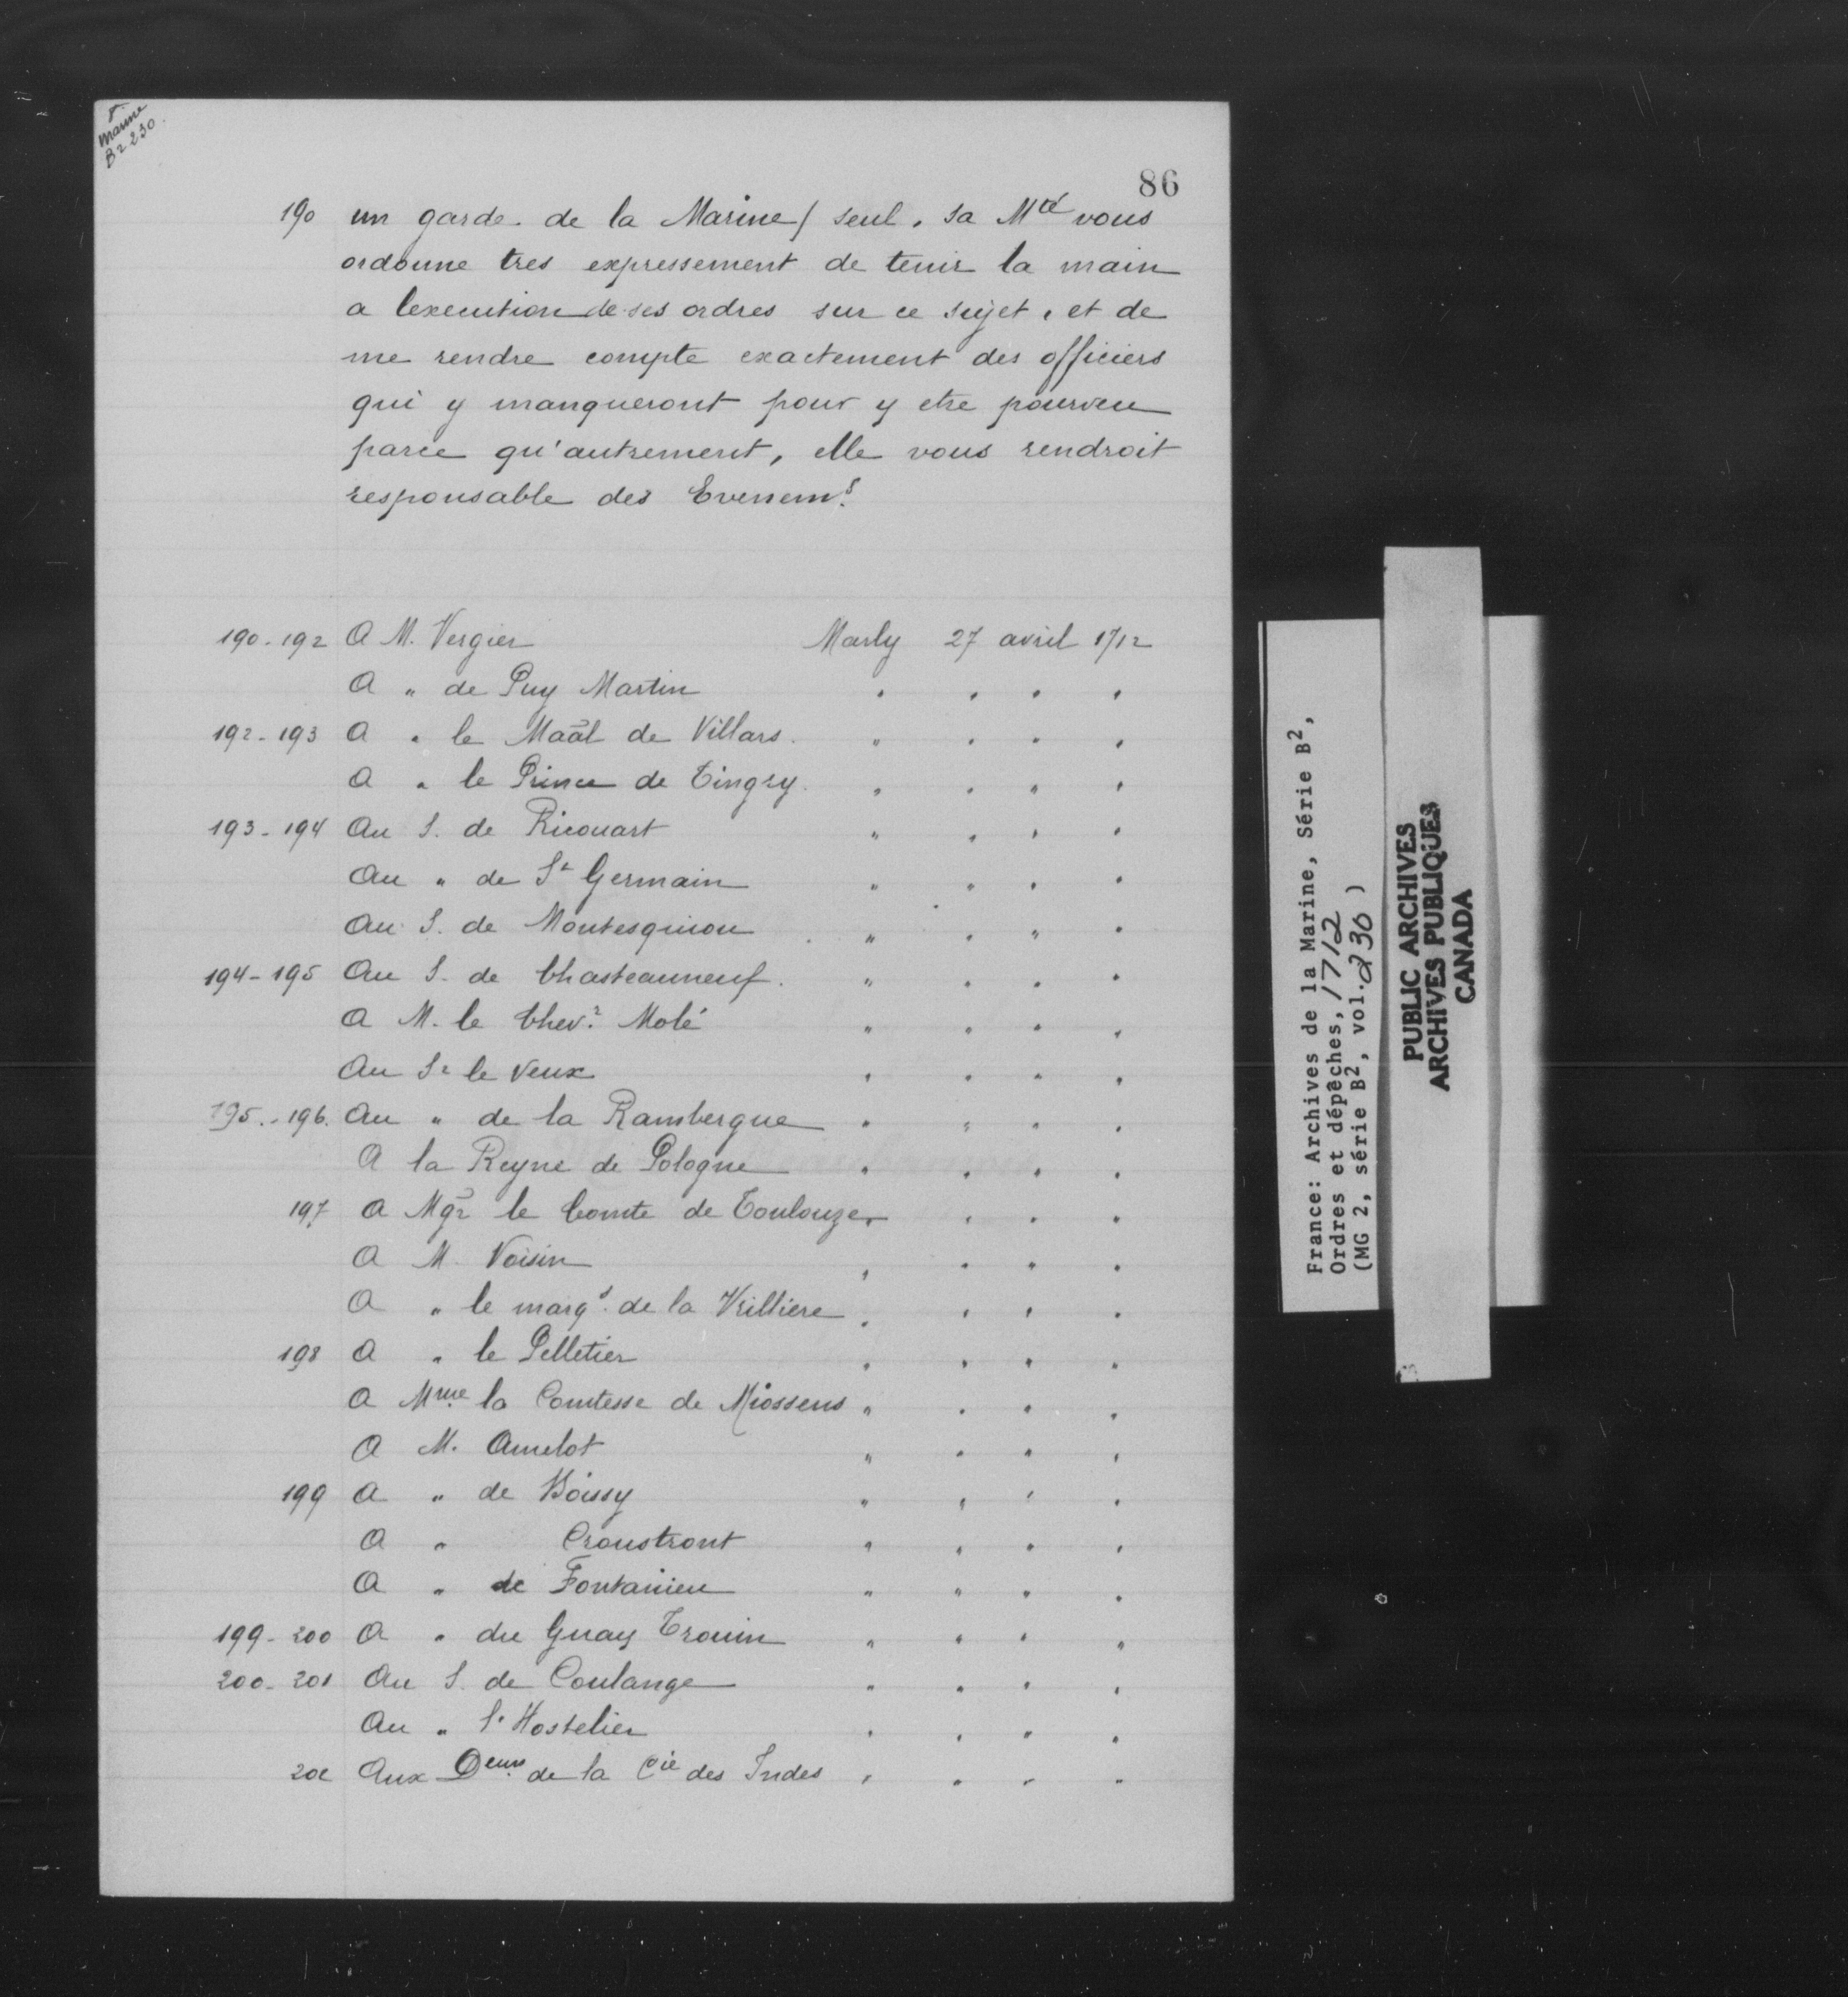 F
Marine
B2 230.
86
190 un garde de la Marine/ seul, sa Mté vous
ordonne tres expressement de tenir la main
a lexecution de ses ordres sur ce sujet, et de
me rendre compte exactement des officiers
qui y manqueront pour y etre pourveu
parce qu'autrement, elle vous rendroit
responsable des Evenems.
190-192 A M. Vergier Marly 27 avril 1712
A " de Puy Martin " " " "
192-193 A " le Maâl de Villars. " " " "
A " le Prince de Tingry. " " " "
193-194 Au S. de Ricouart " " " "
Au " de St Germain " " " "
Au S. de Montesquiou " " " "
194-195 Au S. de Chasteauneuf. " " " "
A M. le Chevr. Molé " " " "
Au Sr le Veux " " " "
195-196. Au " de la Rambergue " " " "
A la Reyne de Pologne " " " "
197 A Mgr le Comte de Toulouze " " " "
A M. Voisin " " " "
A " le marqs. de la Vrilliere " " " "
198 A " le Pelletier " " " "
A Mme la Comtesse de Miossens " " " "
A M. Amelot " " " "
199 A " de Boissy " " " "
A " Croustront " " " "
A " de Fontanieu " " " "
199-200 A " du Guay Trouin " " " "
200-201 Au S. de Coulange " " " "
Au " l'Hostelier " " " "
Aux Deurs de la Cie des Indes " " " "
France: Archives de la Marine, Série B2,
Ordres et dépêches, 1712
(MG 2, série B2, vol. 230)
PUBLIC ARCHIVES
ARCHIVES PUBLIQUES
CANADA